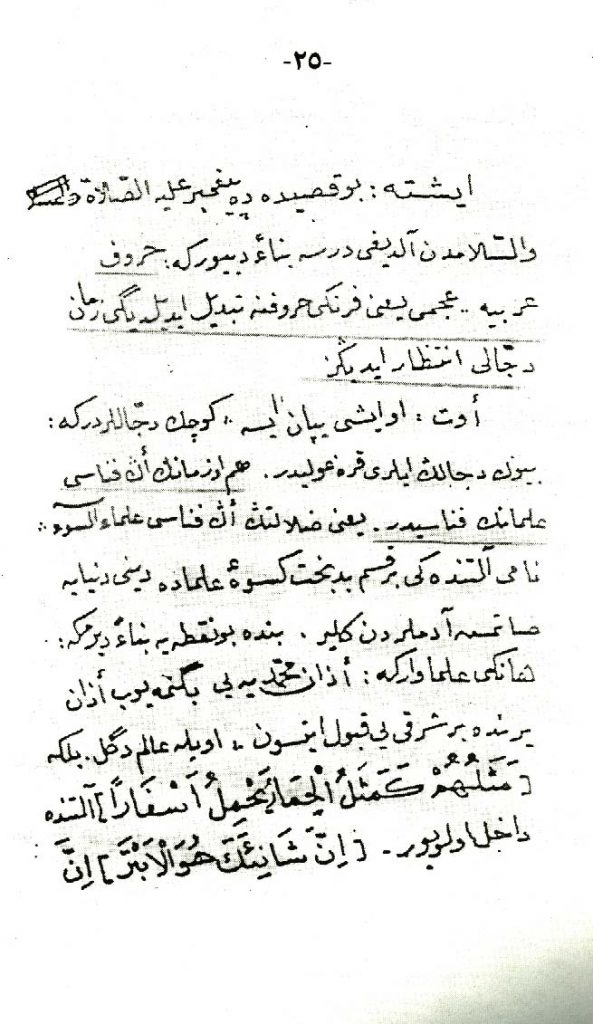 -٢٥-
ايشته : بو قصيده ده پيغمبر عليه الصّلاة
والسّلامدن آلديغى درسه بناءً دييوركه : حروف
عربيه .. عجمى يعنى فرنكى حروفنه تبديل ايديلديگى زمان
دجّالى انتظار ايديگز
أوت : او ايشى يپان ايسه .. كوچك دجّاللردركه :
بيوك دجالك ايلرى قره غوليدر . هم او زمانك أڭ فناسى
علمانك فناسيدر . يعنى ضلالتڭ أڭ فناسى علماء السوء ..
نامى آلتنده كى بر قسم بدبخت كسوهٔ علماده دينى دنيايه
صاتمسه آدملردن كلير . بنده بو نقطه يه بناءً ديرمكه :
هانكى علما واركه : أذان محمّديه يى بگنمه يوب أذان
يرنده بر شرقى يى قبول ايتسون ، اويله عالم دگل . بلكه
[مَثَلُهُمْ كَمَثَلِ الْحِمَارِ يَحْمِلُ اَسْفَارًا] آلتنده
داخل اولويور . [اِنَّ شَانِئَكَ هُوَ الْاَبْتَرُ] اِنَّ